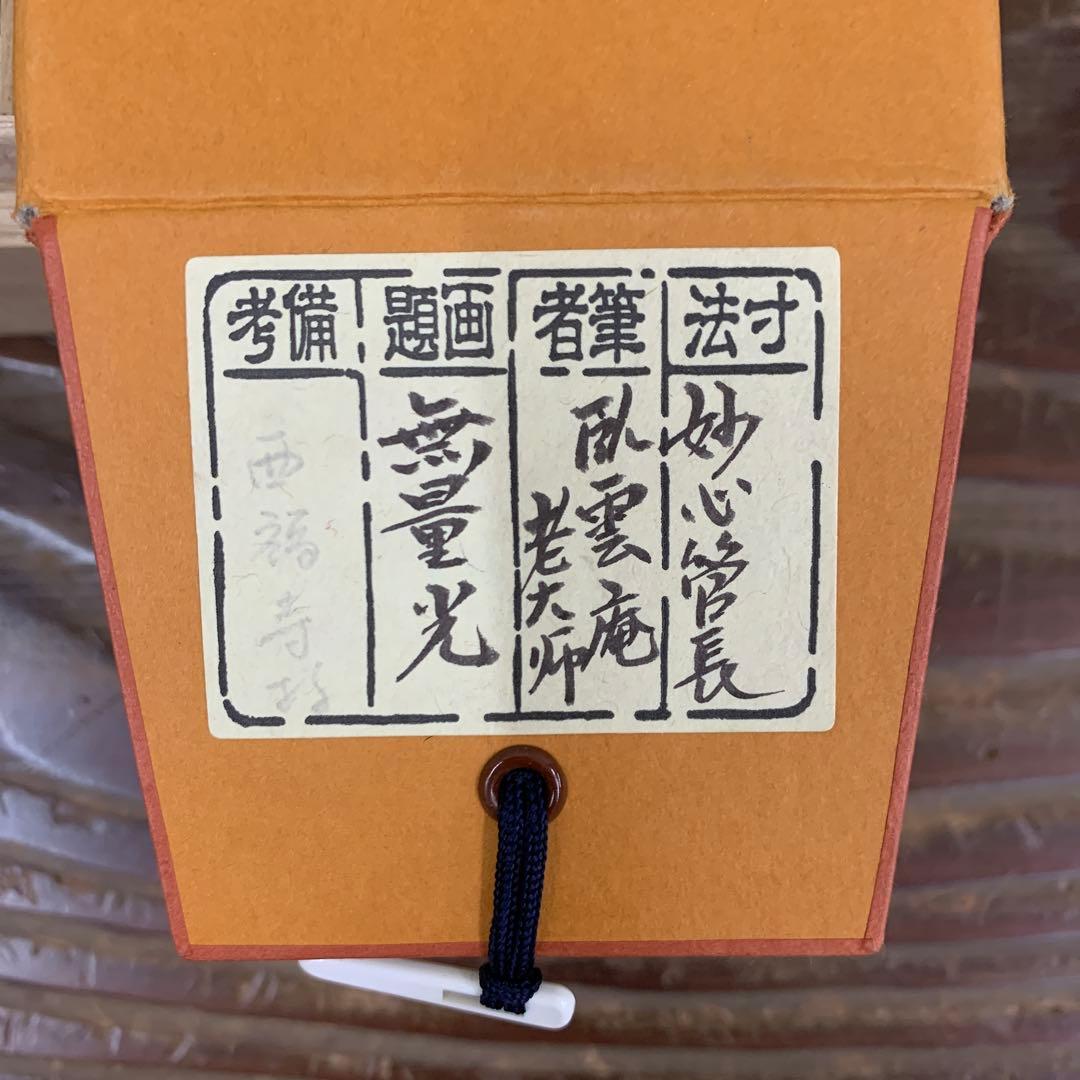 寸法
妙心管長
筆者
臥雲庵
老大师
画題
無量光
備考
西福寺